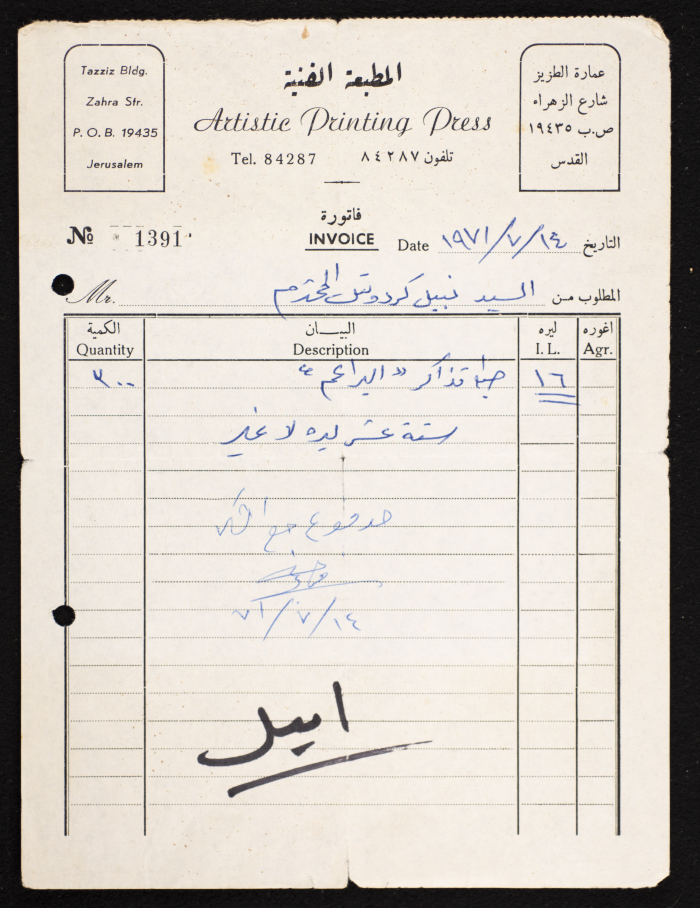 Tazziz Bldg.
Zahra Str.
P. O. B. 19435
Jerusalem
المطبعة الفنية
Artistic Printing Press
Tel. 84287 تلفون ٨٤٢٨٧
عمارة الطزيز
شارع الزهراء
ص.ب ١٩٤٣٥
القدس
فاتورة
INVOICE
№ 1391
Date ١٩٧١/٧/١٤ التاريخ
Mr. السيد نبيل المحترم المطلوب من
الكمية البيــان ليره اغوره
Quantity Description I. L. Agr.
٣٠٠ تذاكر « » ١٦
ستة عشر ليره لا غير
مدفوع مع الشكر
٧١/٧/١٤